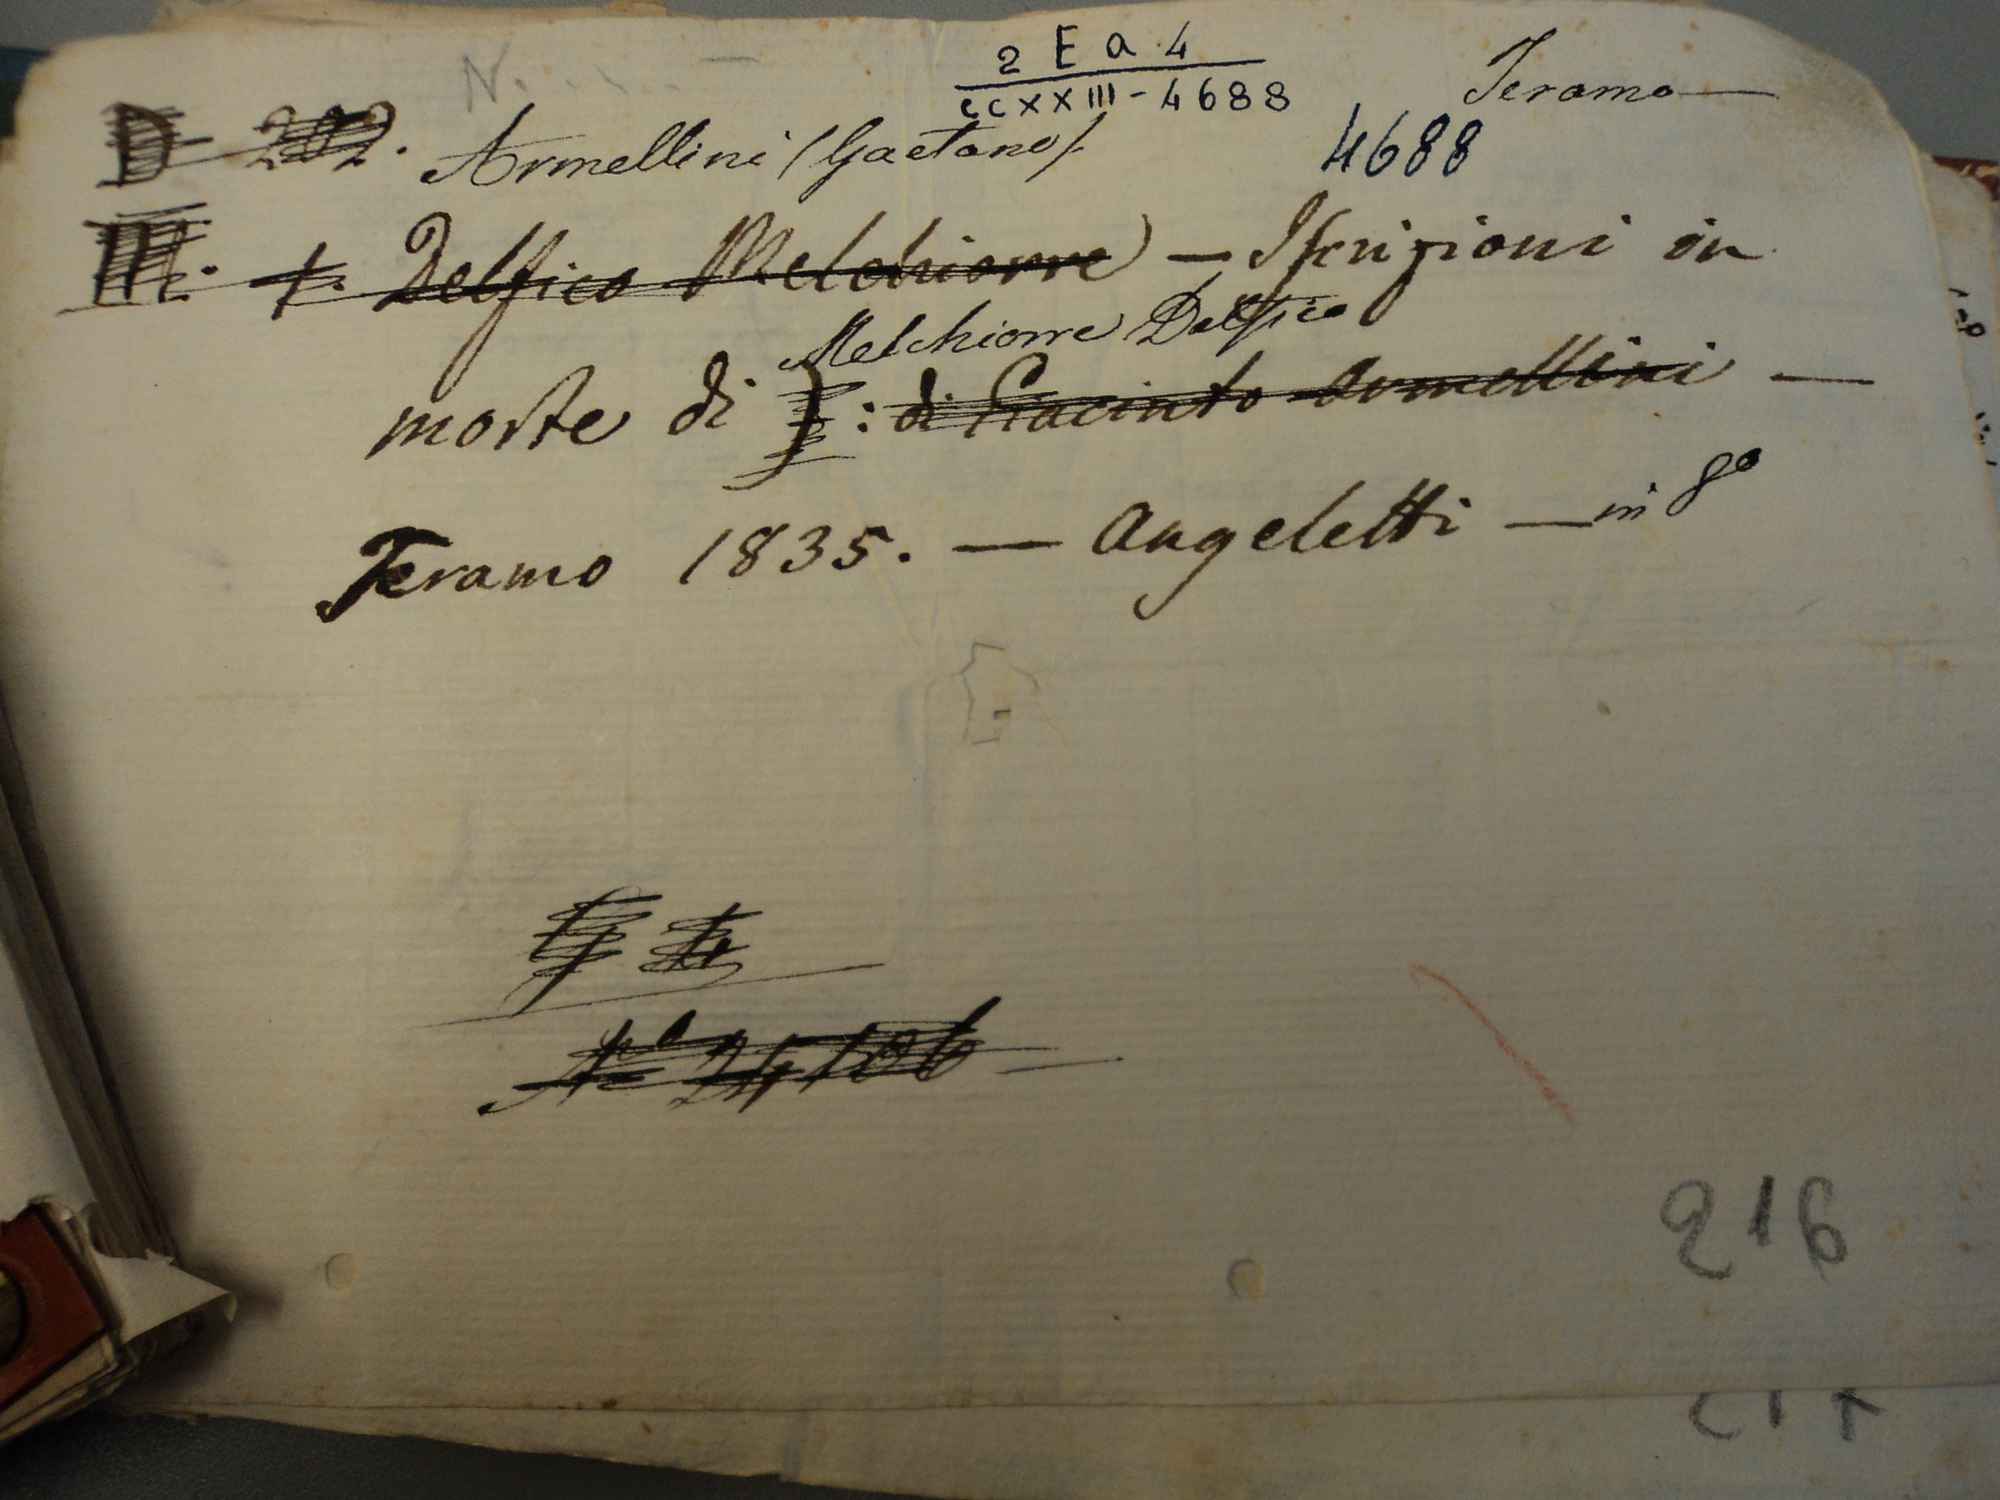 N.
2 E a 4
CCXXIII - 4688
Teramo
D 202. Armellini (Gaetano).
4688
III. Delfico Melchiorre) — Iscrizioni in
Melchiorre Delfico
morte di : di Giacinto Armellini —
Teramo 1835. — Angeletti — in 8º
216